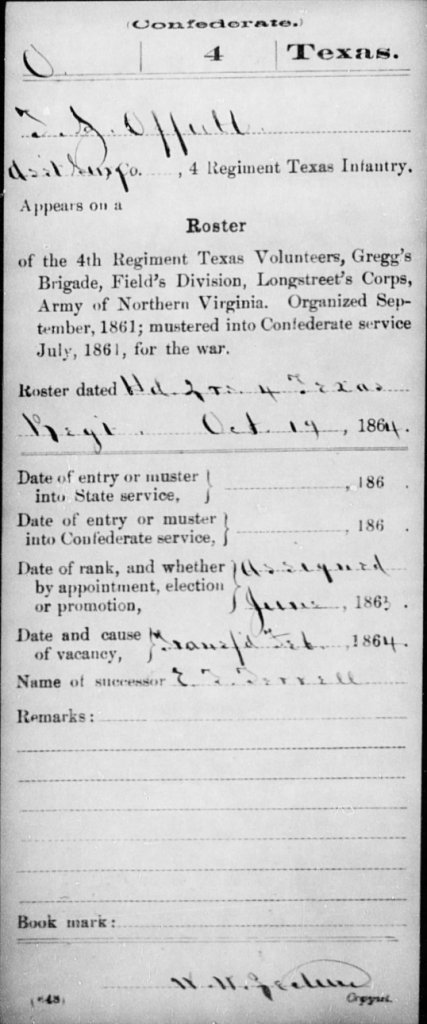 (Confederate.)
O. | 4 | Texas.
T. G. Offutt.
Ass't Surg Co. , 4 Regiment Texas Infantry.
Appears on a
Roster
of the 4th Regiment Texas Volunteers, Gregg's
Brigade, Field's Division, Longstreet's Corps,
Army of Northern Virginia. Organized Sep-
tember, 1861; mustered into Confederate service
July, 1861, for the war.
Roster dated Hd. Qrs. 4 Texas
Regt. Oct. 19, 1864.
Date of entry or muster
into State service, , 186 .
Date of entry or muster
into Confederate service, , 186 .
Date of rank, and whether
by appointment, election
or promotion, Assigned
June , 1863.
Date and cause
of vacancy, Transf'd Feb. , 1864.
Name of successor E. T. Terrell
Remarks:
Book mark:
W. W.
(648) Copyist.